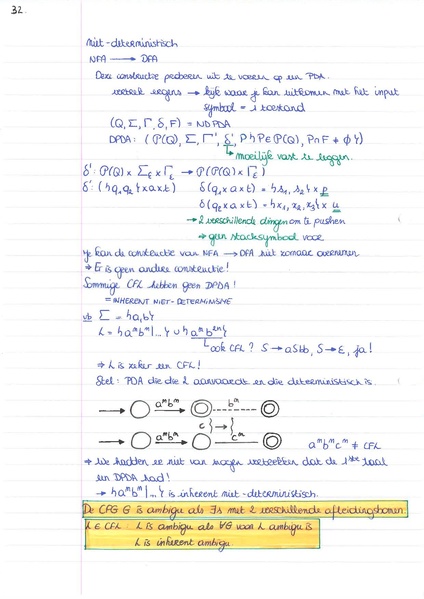 32
niet-deterministisch
NFA → DFA
Deze constructie proberen uit te voeren op een PDA.
vertrek ergens → kijk waar je kan uitkomen met het input
symbool = 1 toestand
(Q, Σ, Γ, δ, F) = NDPDA
DPDA: (P(Q), Σ, Γ', δ', P{P∈P(Q), P∩F ≠ ∅})
↳ moeilijk vast te leggen.
δ': P(Q) × Σε × Γε → P(P(Q) × Γε)
δ': ({q₁,q₂} × a × t) δ(q₁ × a × t) = {s₁, s₂} × p
δ(q₂ × a × t) = {r₁, r₂, r₃} × u
→ 2 verschillende dingen om te pushen
⇒ geen stacksymbool voor
Je kan de constructie van NFA → DFA niet zomaar overnemen
⇒ Er is geen andere constructie!
Sommige CFL hebben geen DPDA!
= INHERENT NIET-DETERMINISME
vb Σ = {a,b}
L = {aⁿbⁿ|...} ∪ {aⁿb²ⁿ}
↳ ook CFL? S→aSbb, S→ε, ja!
⇒ L is zeker een CFL!
Stel: PDA die die L aanvaardt en die deterministisch is.
→ ○ aⁿbⁿ → ◎ bⁿ ◎
c } → {
→ ○ aⁿbⁿ → ○ cⁿ → ◎ aⁿbⁿcⁿ ≠ CFL
⇒ We hadden er niet van mogen vertrekken dat de 1ste taal
een DPDA had!
→ {aⁿbⁿ|...} is inherent niet-deterministisch.
De CFG G is ambigu als ∃s met 2 verschillende afleidingsbomen.
L ∈ CFL: L is ambigu als ∀G voor L ambigu is
L is inherent ambigu.